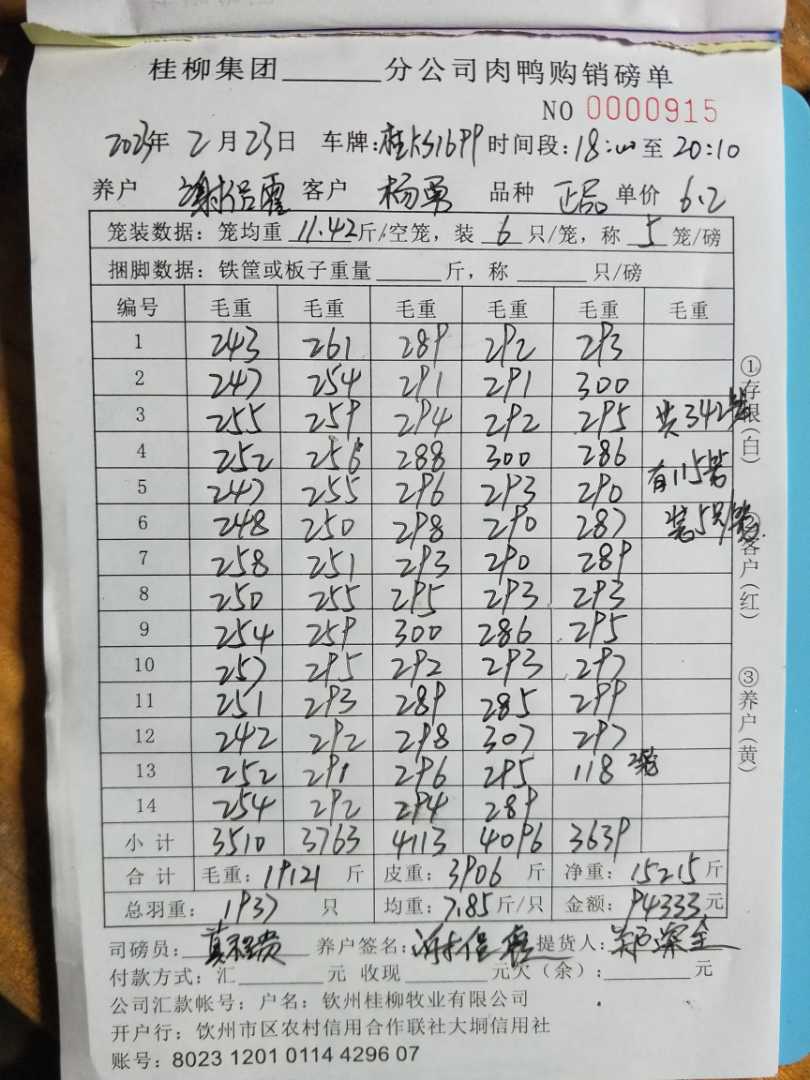 桂柳集团______分公司肉鸭购销磅单
NO 0000915
2023年 2月23日 车牌:桂 时间段:18:00至20:10
养户 客户 杨勇 品种 正品 单价 6.2
笼装数据:笼均重 11.42斤/空笼,装 6 只/笼,称 5 笼/磅
捆脚数据:铁筐或板子重量______斤,称______只/磅
编号 毛重 毛重 毛重 毛重 毛重 毛重
1 243 261 289 292 293
2 247 254 291 291 300
3 255 259 294 292 295 共342笼
4 252 256 288 300 286
5 247 255 296 293 290 有115笼
6 248 250 298 290 287 装5只/笼
7 258 251 293 290 289
8 250 255 295 293 293
9 254 259 300 286 295
10 257 295 292 293 297
11 251 293 289 285 299
12 242 292 298 307 297
13 252 291 296 295 118 2笼
14 254 292 294 289
小计 3510 3763 4113 4096 3639
合计 毛重:19121 斤 皮重:3906 斤 净重:15215斤
总羽重:1937 只 均重:7.85斤/只 金额:94333元
司磅员: 养户签名: 提货人:
付款方式:汇______元 收现______元欠(余):______元
公司汇款帐号:户名:钦州桂柳牧业有限公司
开户行:钦州市区农村信用合作联社大垌信用社
账号:8023 1201 0114 4296 07
①存根(白)
②客户(红)
③养户(黄)